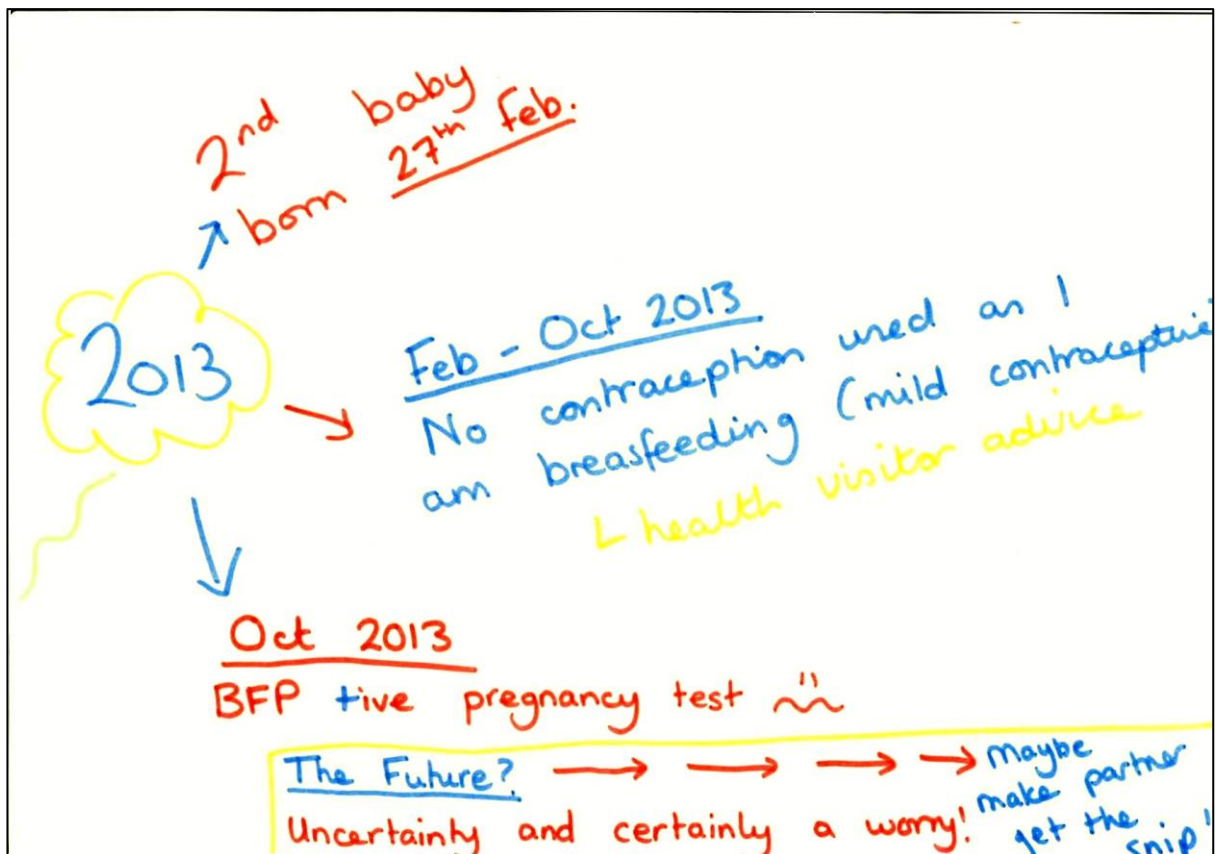 2nd baby
born 27th Feb.
2013
Feb - Oct 2013
No contraception used as I
am breasfeeding (mild contraceptive
L health visitor advice
Oct 2013
BFP +ive pregnancy test
The Future? → → → → maybe
make partner
Uncertainty and certainly a worry!
get the
snip!